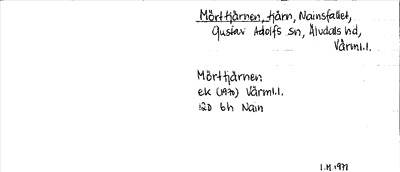 Mörttjärnen, tjärn, Nainsfallet,
Gustav Adolfs sn, Älvdals hd,
Värml.l.
Mörttjärnen
ek (1970) Värml.l.
12D 6h Nain
1971